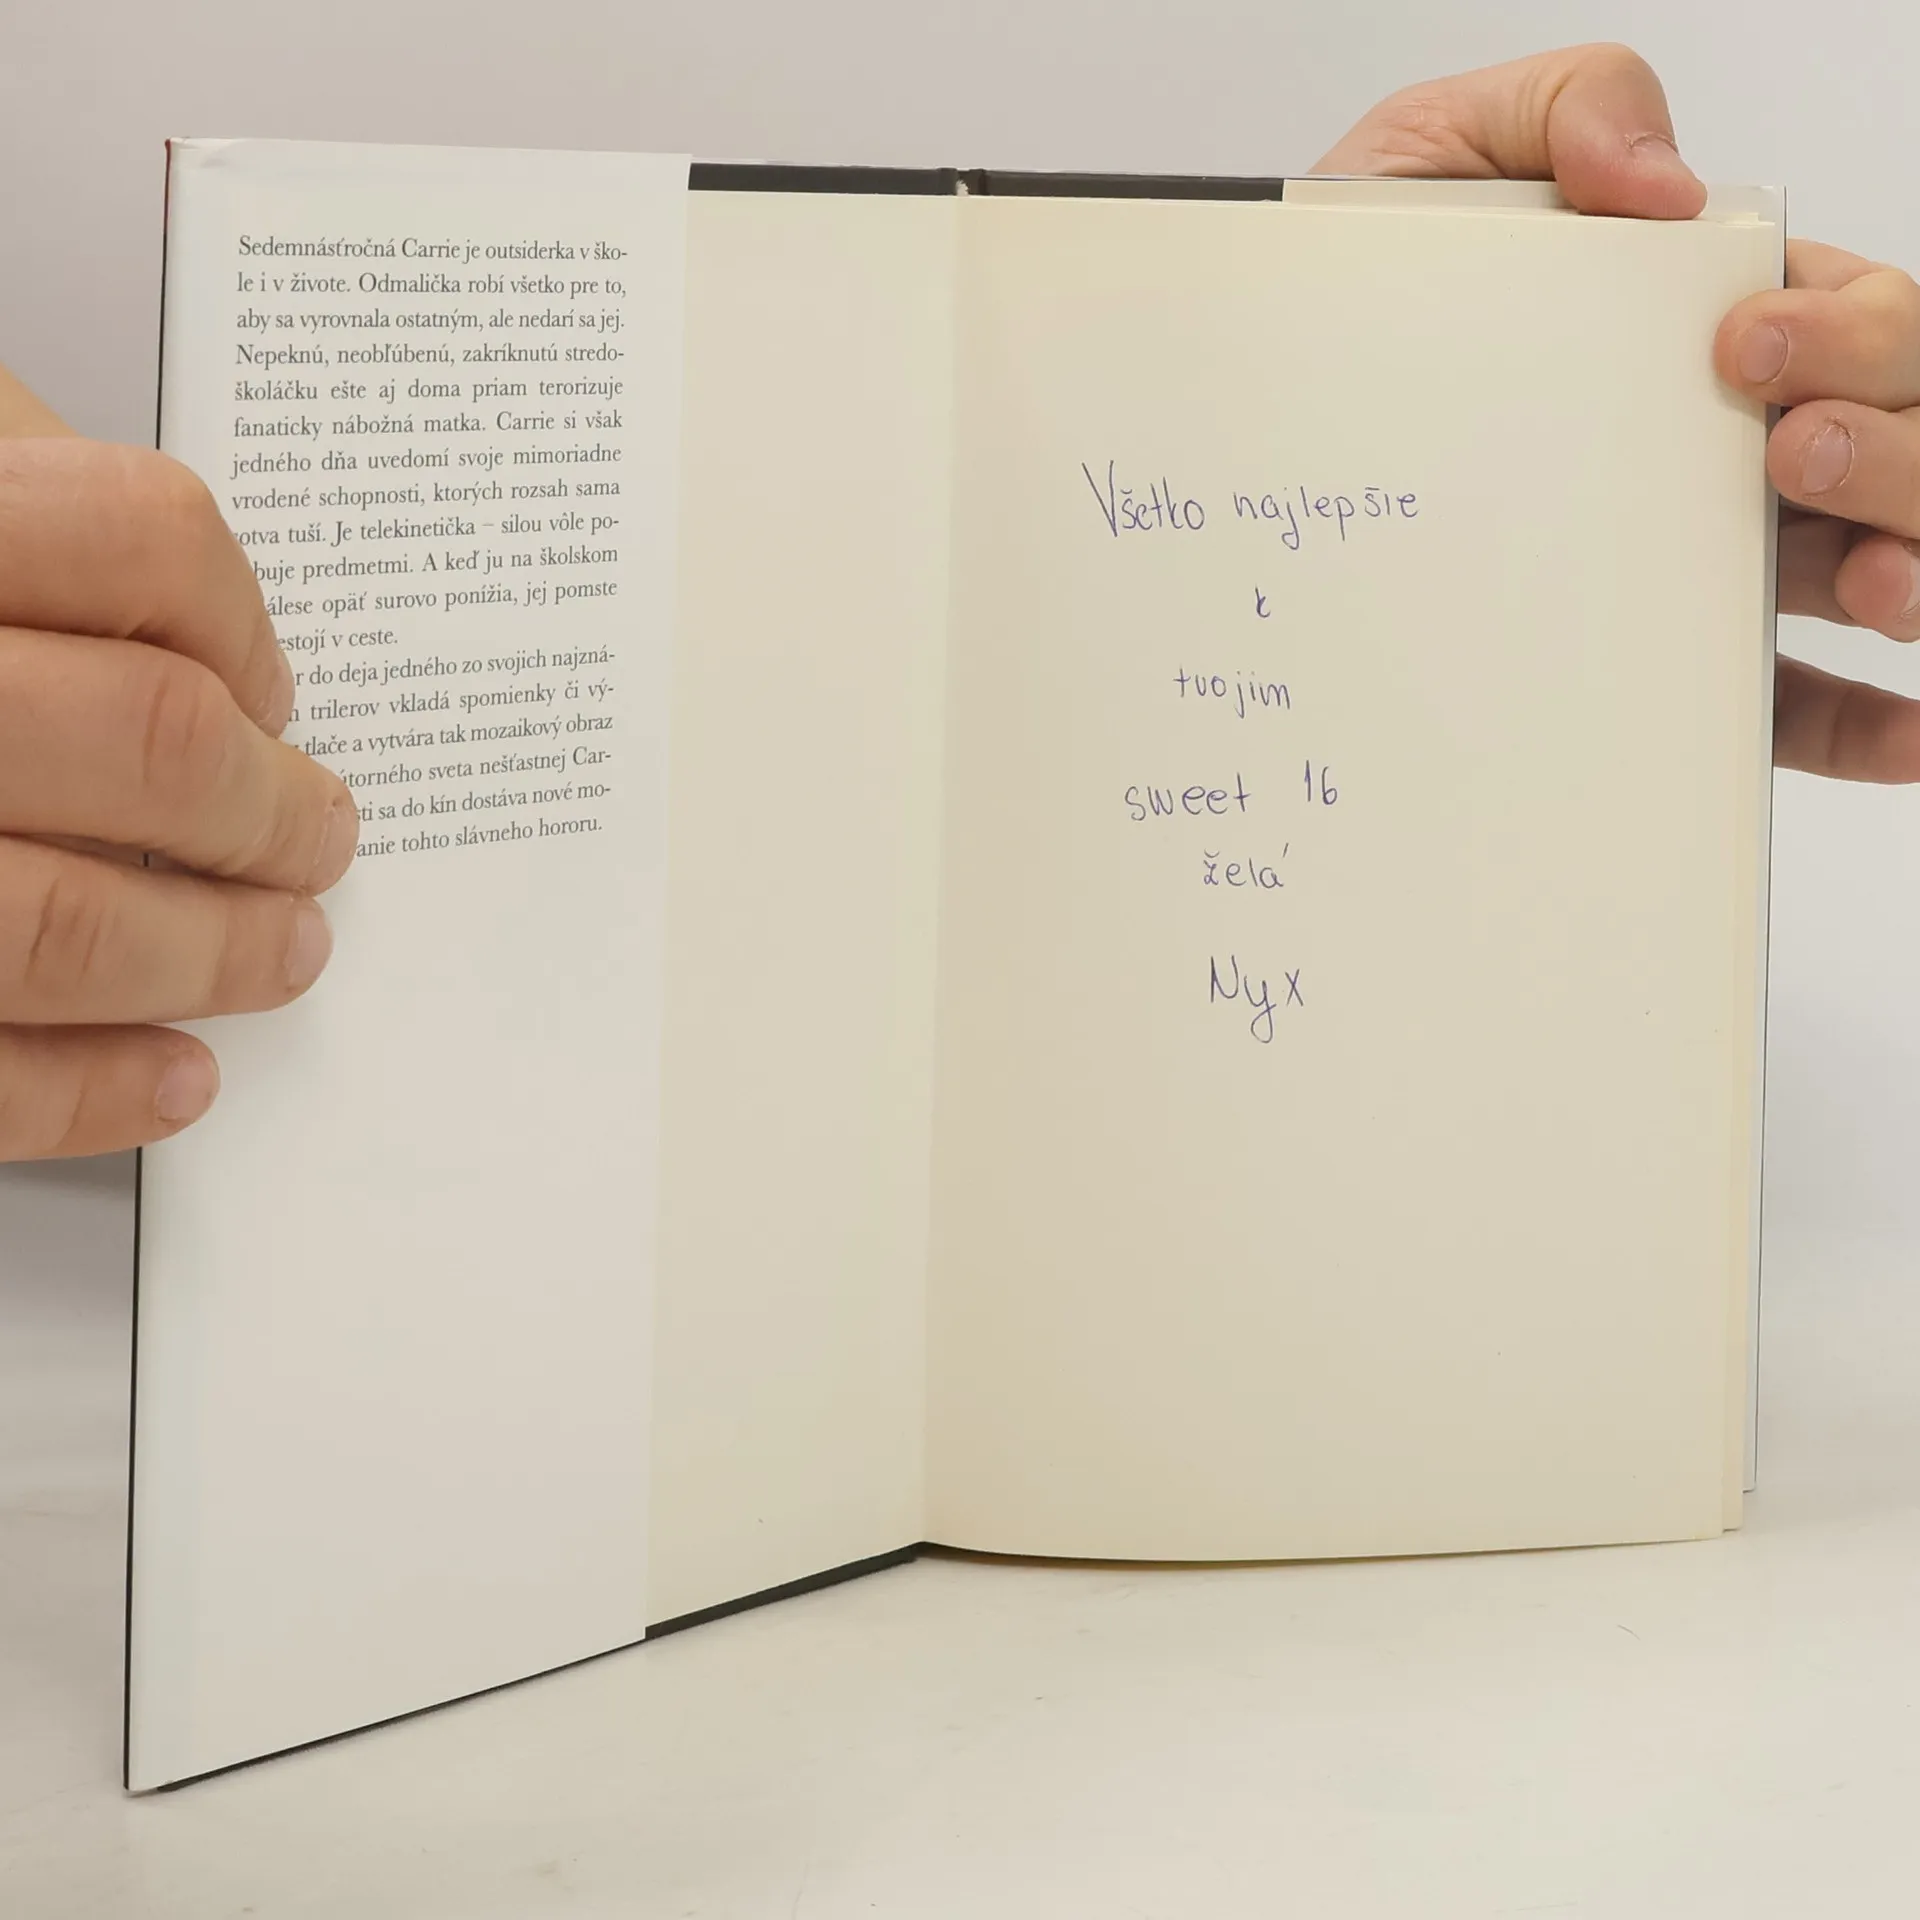 Sedemnásťročná Carrie je outsiderka v ško-
le i v živote. Odmalička robí všetko pre to,
aby sa vyrovnala ostatným, ale nedarí sa jej.
Nepeknú, neobľúbenú, zakríknutú stredo-
školáčku ešte aj doma priam terorizuje
fanaticky nábožná matka. Carrie si však
jedného dňa uvedomí svoje mimoriadne
vrodené schopnosti, ktorých rozsah sama
tuší. Je telekinetička – silou vôle po-
predmetmi. A keď ju na školskom
opäť surovo ponížia, jej pomste
v ceste.
do deja jedného zo svojich najzná-
trilerov vkladá spomienky či vý-
tlače a vytvára tak mozaikový obraz
sveta nešťastnej Car-
sa do kín dostáva nové mo-
tohto slávneho hororu.
Všetko najlepšie
k
tvojim
sweet 16
želá
Nyx